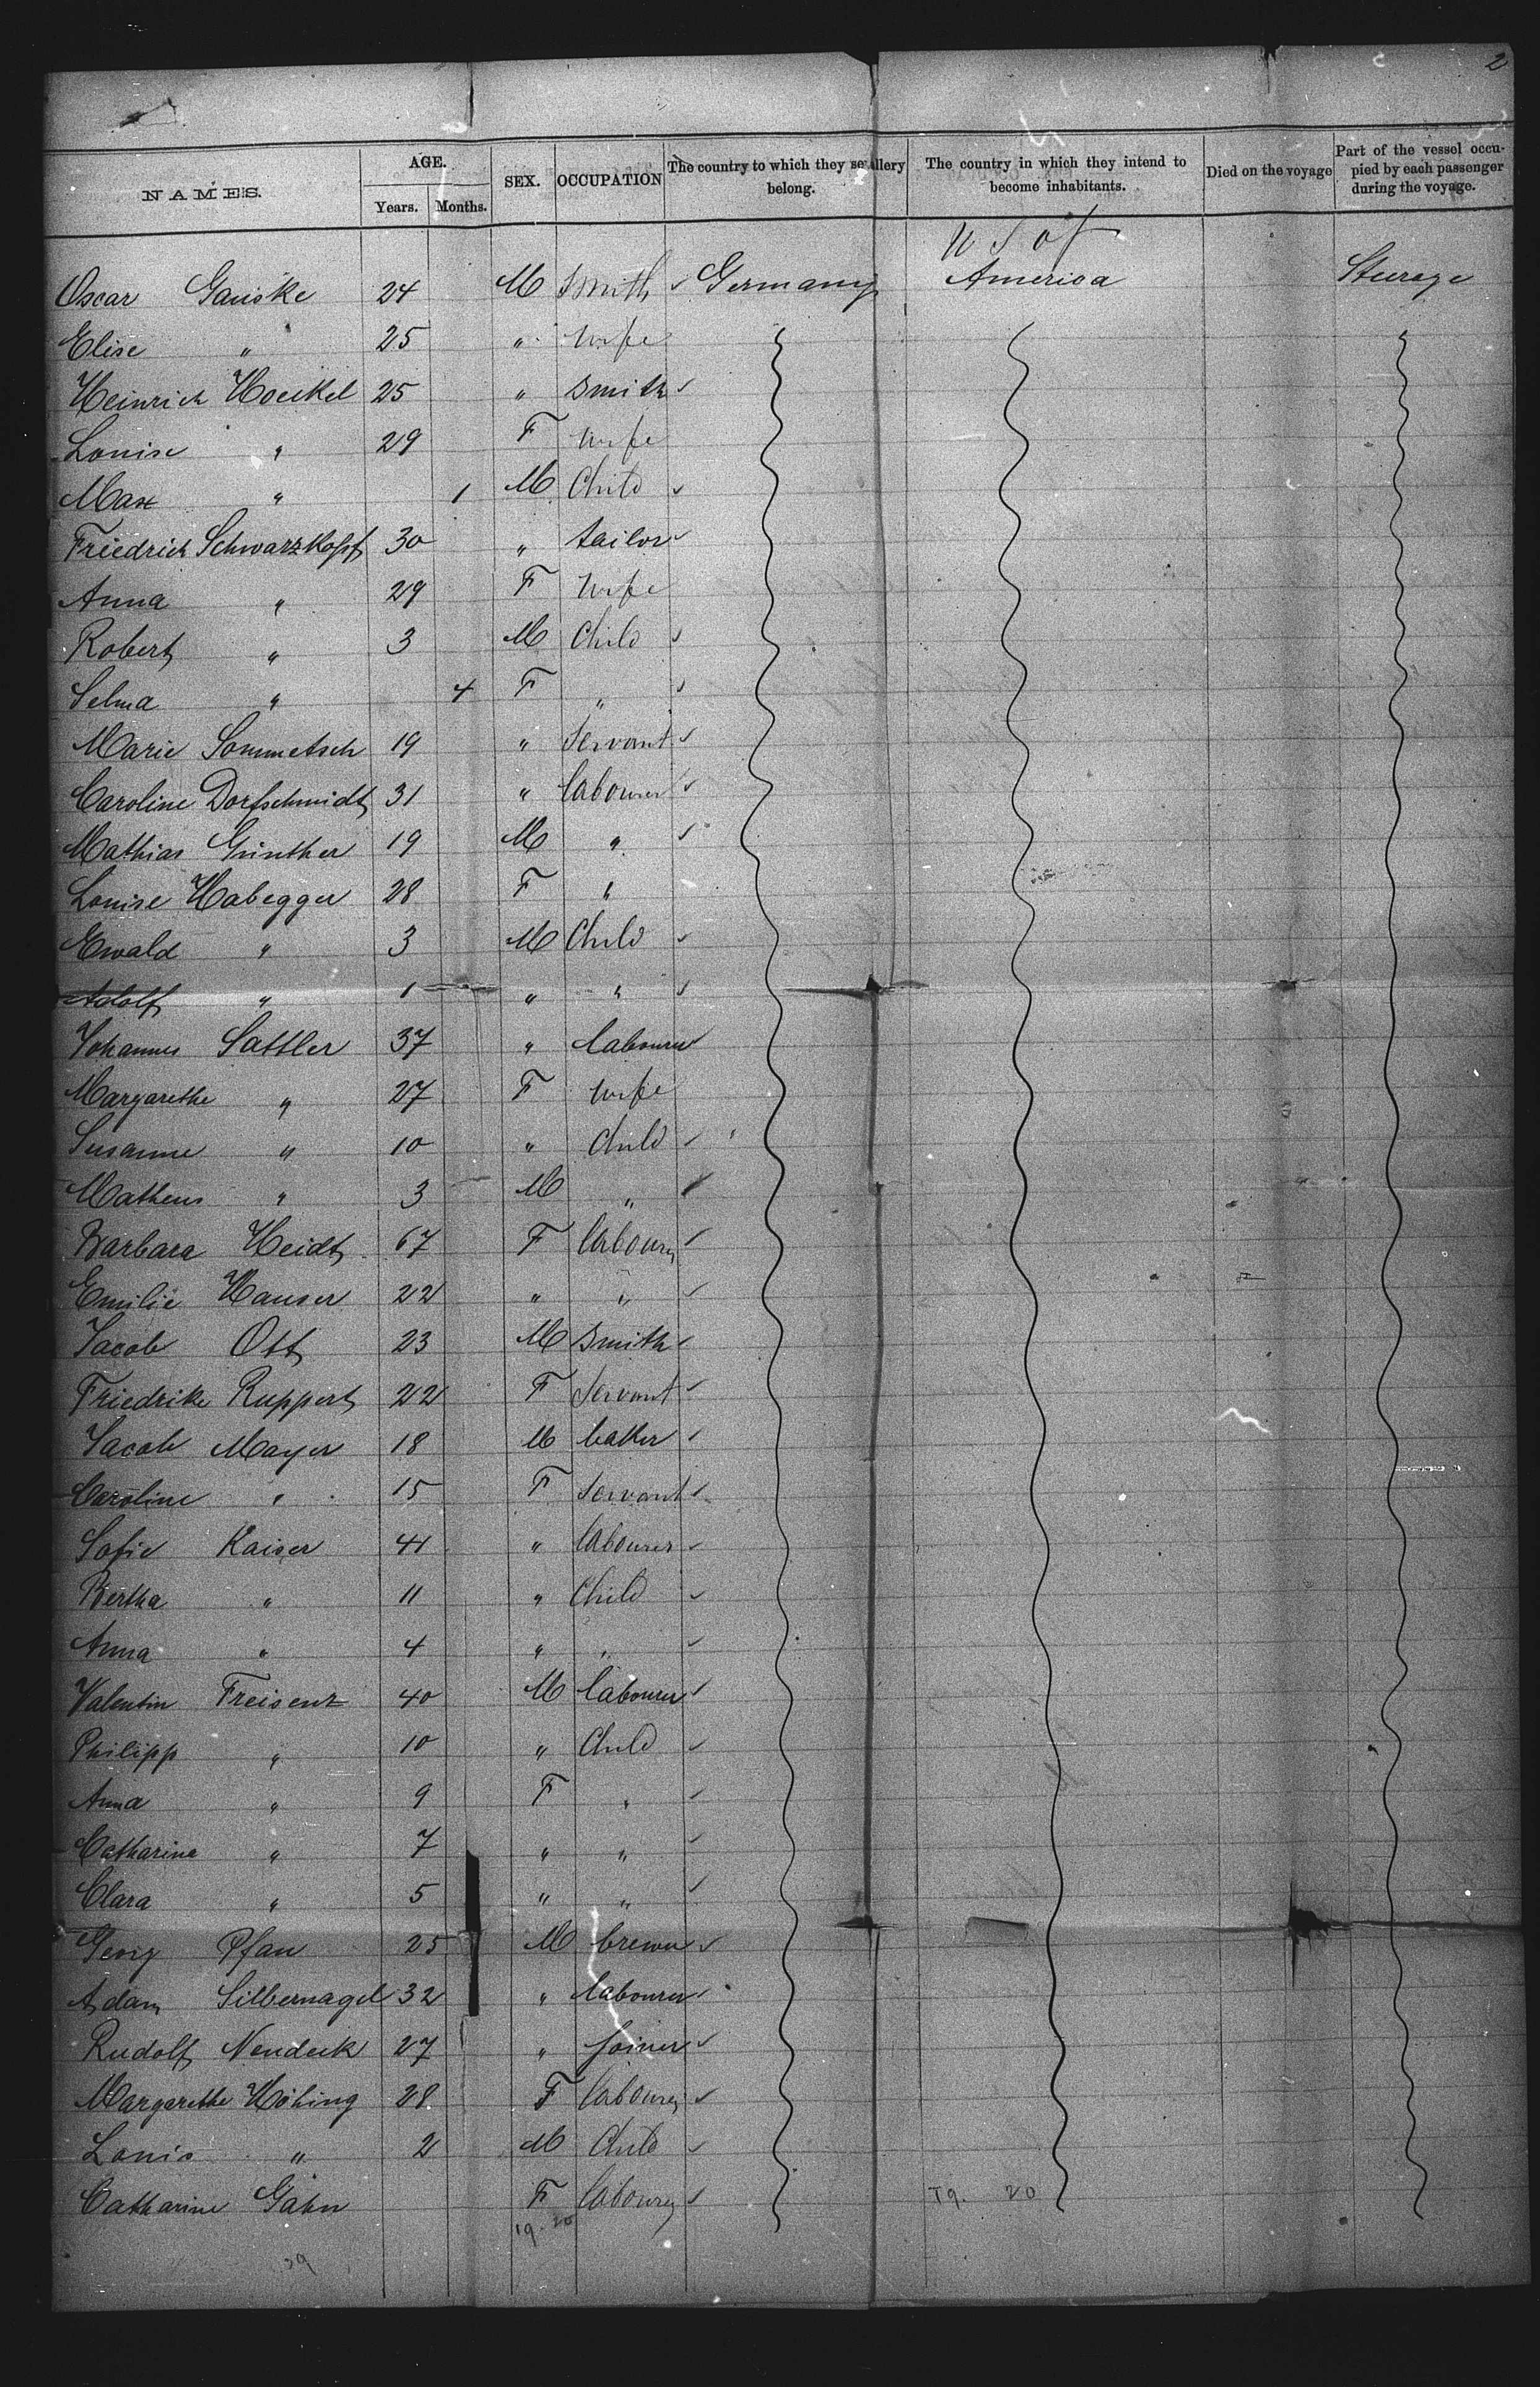 2
NAMES. AGE. SEX. OCCUPATION The country to which they severally belong. The country in which they intend to become inhabitants. Died on the voyage Part of the vessel occupied by each passenger during the voyage.
Years. Months.
U S of
Oscar Ganske 24 M Smith ✓ Germany America Steerage
Elise " 25 " Wife
Heinrich Hoeckel 25 " Smith ✓
Louise " 29 F Wife
Max " 1 M Child ✓
Friedrich Schwarzkopf 30 " tailor ✓
Anna " 29 F Wife
Robert " 3 M Child ✓
Selma " 4 F " ✓
Marie Sommetsch 19 " Servant ✓
Caroline Dorfschmidt 31 " labourer ✓
Mathias Günther 19 M " ✓
Louise Habegger 28 F "
Ewald " 3 M Child ✓
Adolf " 1 " " ✓
Johannes Sattler 37 " labourer ✓
Margarethe " 27 F wife
Susanne " 10 " child ✓
Matheus " 3 M " ✓
Barbara Heidt 67 F labourer ✓
Emilie Hauser 22 " " ✓
Jacob Ott 23 M Smith ✓
Friedrike Ruppert 22 F Servant ✓
Jacob Mayer 18 M baker ✓
Caroline " 15 F Servant ✓
Sofie Kaiser 41 " labourer ✓
Bertha " 11 " Child ✓
Anna " 4 " " ✓
Valentin Freisenz 40 M labourer ✓
Philipp " 10 " Child ✓
Anna " 9 F " ✓
Catharina " 7 " " ✓
Clara " 5 " " ✓
Georg Pfau 25 M brewer ✓
Adam Silbernagel 32 " labourer ✓
Rudolf Nendeck 27 " joiner ✓
Margarethe Höhing 28 F labourer ✓
Louis " 2 M Child ✓
Catharine Gahn F labourer ✓
19 20 19. 20
39